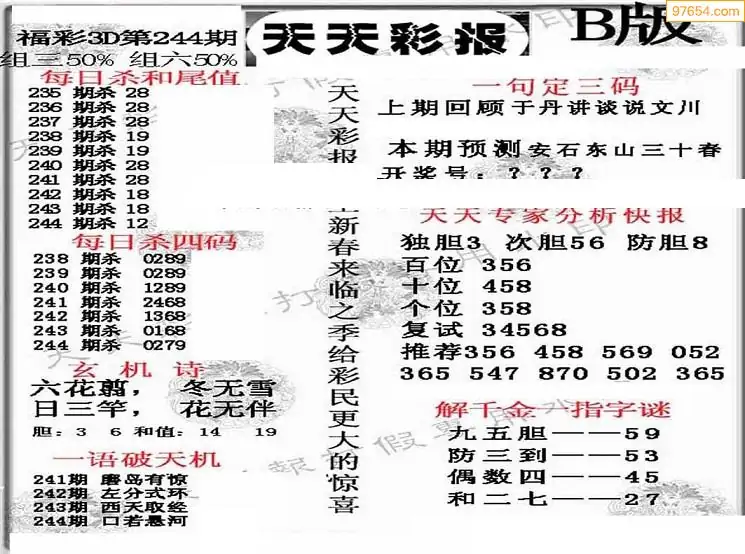 97654.com
福彩3D第244期
天天彩报
B版
组三50% 组六50%
每日杀和尾值
235 期杀 28
236 期杀 28
237 期杀 28
238 期杀 19
239 期杀 19
240 期杀 28
241 期杀 28
242 期杀 18
243 期杀 18
244 期杀 12
每日杀四码
238 期杀 0289
239 期杀 0289
240 期杀 1289
241 期杀 2468
242 期杀 1368
243 期杀 0168
244 期杀 0279
玄机诗
六花翦， 冬无雪
日三竿， 花无伴
胆：3 6 和值：14 19
一语破天机
241期 磨岛有惊
242期 左分式环
243期 西天取经
244期 口若悬河
天天彩报
新春来临之季给彩民更大的惊喜
一句定三码
上期回顾于丹讲谈说文川
本期预测安石东山三十春
开奖号：？？？
天天专家分析快报
独胆3 次胆56 防胆8
百位 356
十位 458
个位 358
复试 34568
推荐356 458 569 052
365 547 870 502 365
解千金一指字谜
九五胆——59
防三到——53
偶数四——45
和二七——27